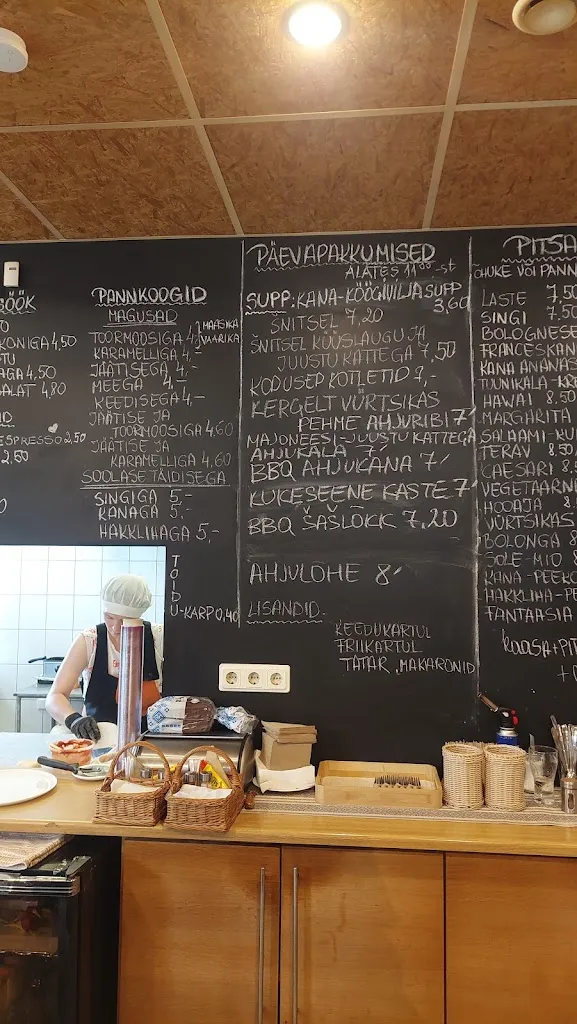 SÖÖK
KONIGA 4,50
TU
AGA 4,50
ALAT 4,80
ESPRESSO 2,50
2.50
PANNKOOGID
MAGUSAD
TOORMOOSIGA 4,- MAASIKA
KARAMELLIGA 4,- VAARIKA
JÄÄTISEGA 4,-
MEEGA 4,-
KEEDISEGA 4,-
JÄÄTISE JA
TOORMOOSIGA 4,60
JÄÄTISE JA
KARAMELLIGA 4,60
SOOLASE TÄIDISEGA
SINGIGA 5,-
KANAGA 5,-
HAKKLIHAGA 5,-
TOIDU-KARP 0,40
PÄEVAPAKKUMISED
ALATES 11⁰⁰-st
SUPP: KANA-KÖÖGIVILJASUPP
3,60
ŠNITSEL 7,20
ŠNITSEL KÜÜSLAUGU JA
JUUSTU KATTEGA 7,50
KODUSED KOTLETID 7,-
KERGELT VÜRTSIKAS
PEHME AHJURIBI 7,-
MAJONEESI-JUUSTU KATTEGA
AHJUKALA 7,-
BBQ AHJUKANA 7,-
KUKESEENE KASTE 7,-
BBQ ŠAŠLÕKK 7,20
AHJULÕHE 8,-
LISANDID
KEEDUKARTUL
FRIIKARTUL
TATAR, MAKARONID
PITSA
ÕHUKE VÕI PANN
LASTE 7,50
SINGI 7,50
BOLOGNESE
FRANCESKAN
KANA ANANAS
TUUNIKALA-KR
HAWAI 8.50
MARGARITA
SALAAMI-KU
TERAV 8.50
CAESARI 8.
VEGETAARN
HOOAJA 8.
VÜRTSIKAS
BOLONGA 8
SOLE-MIO 8
KANA-PEEKO
HAKKLIHA-PE
FANTAASIA
KAASA+PIT